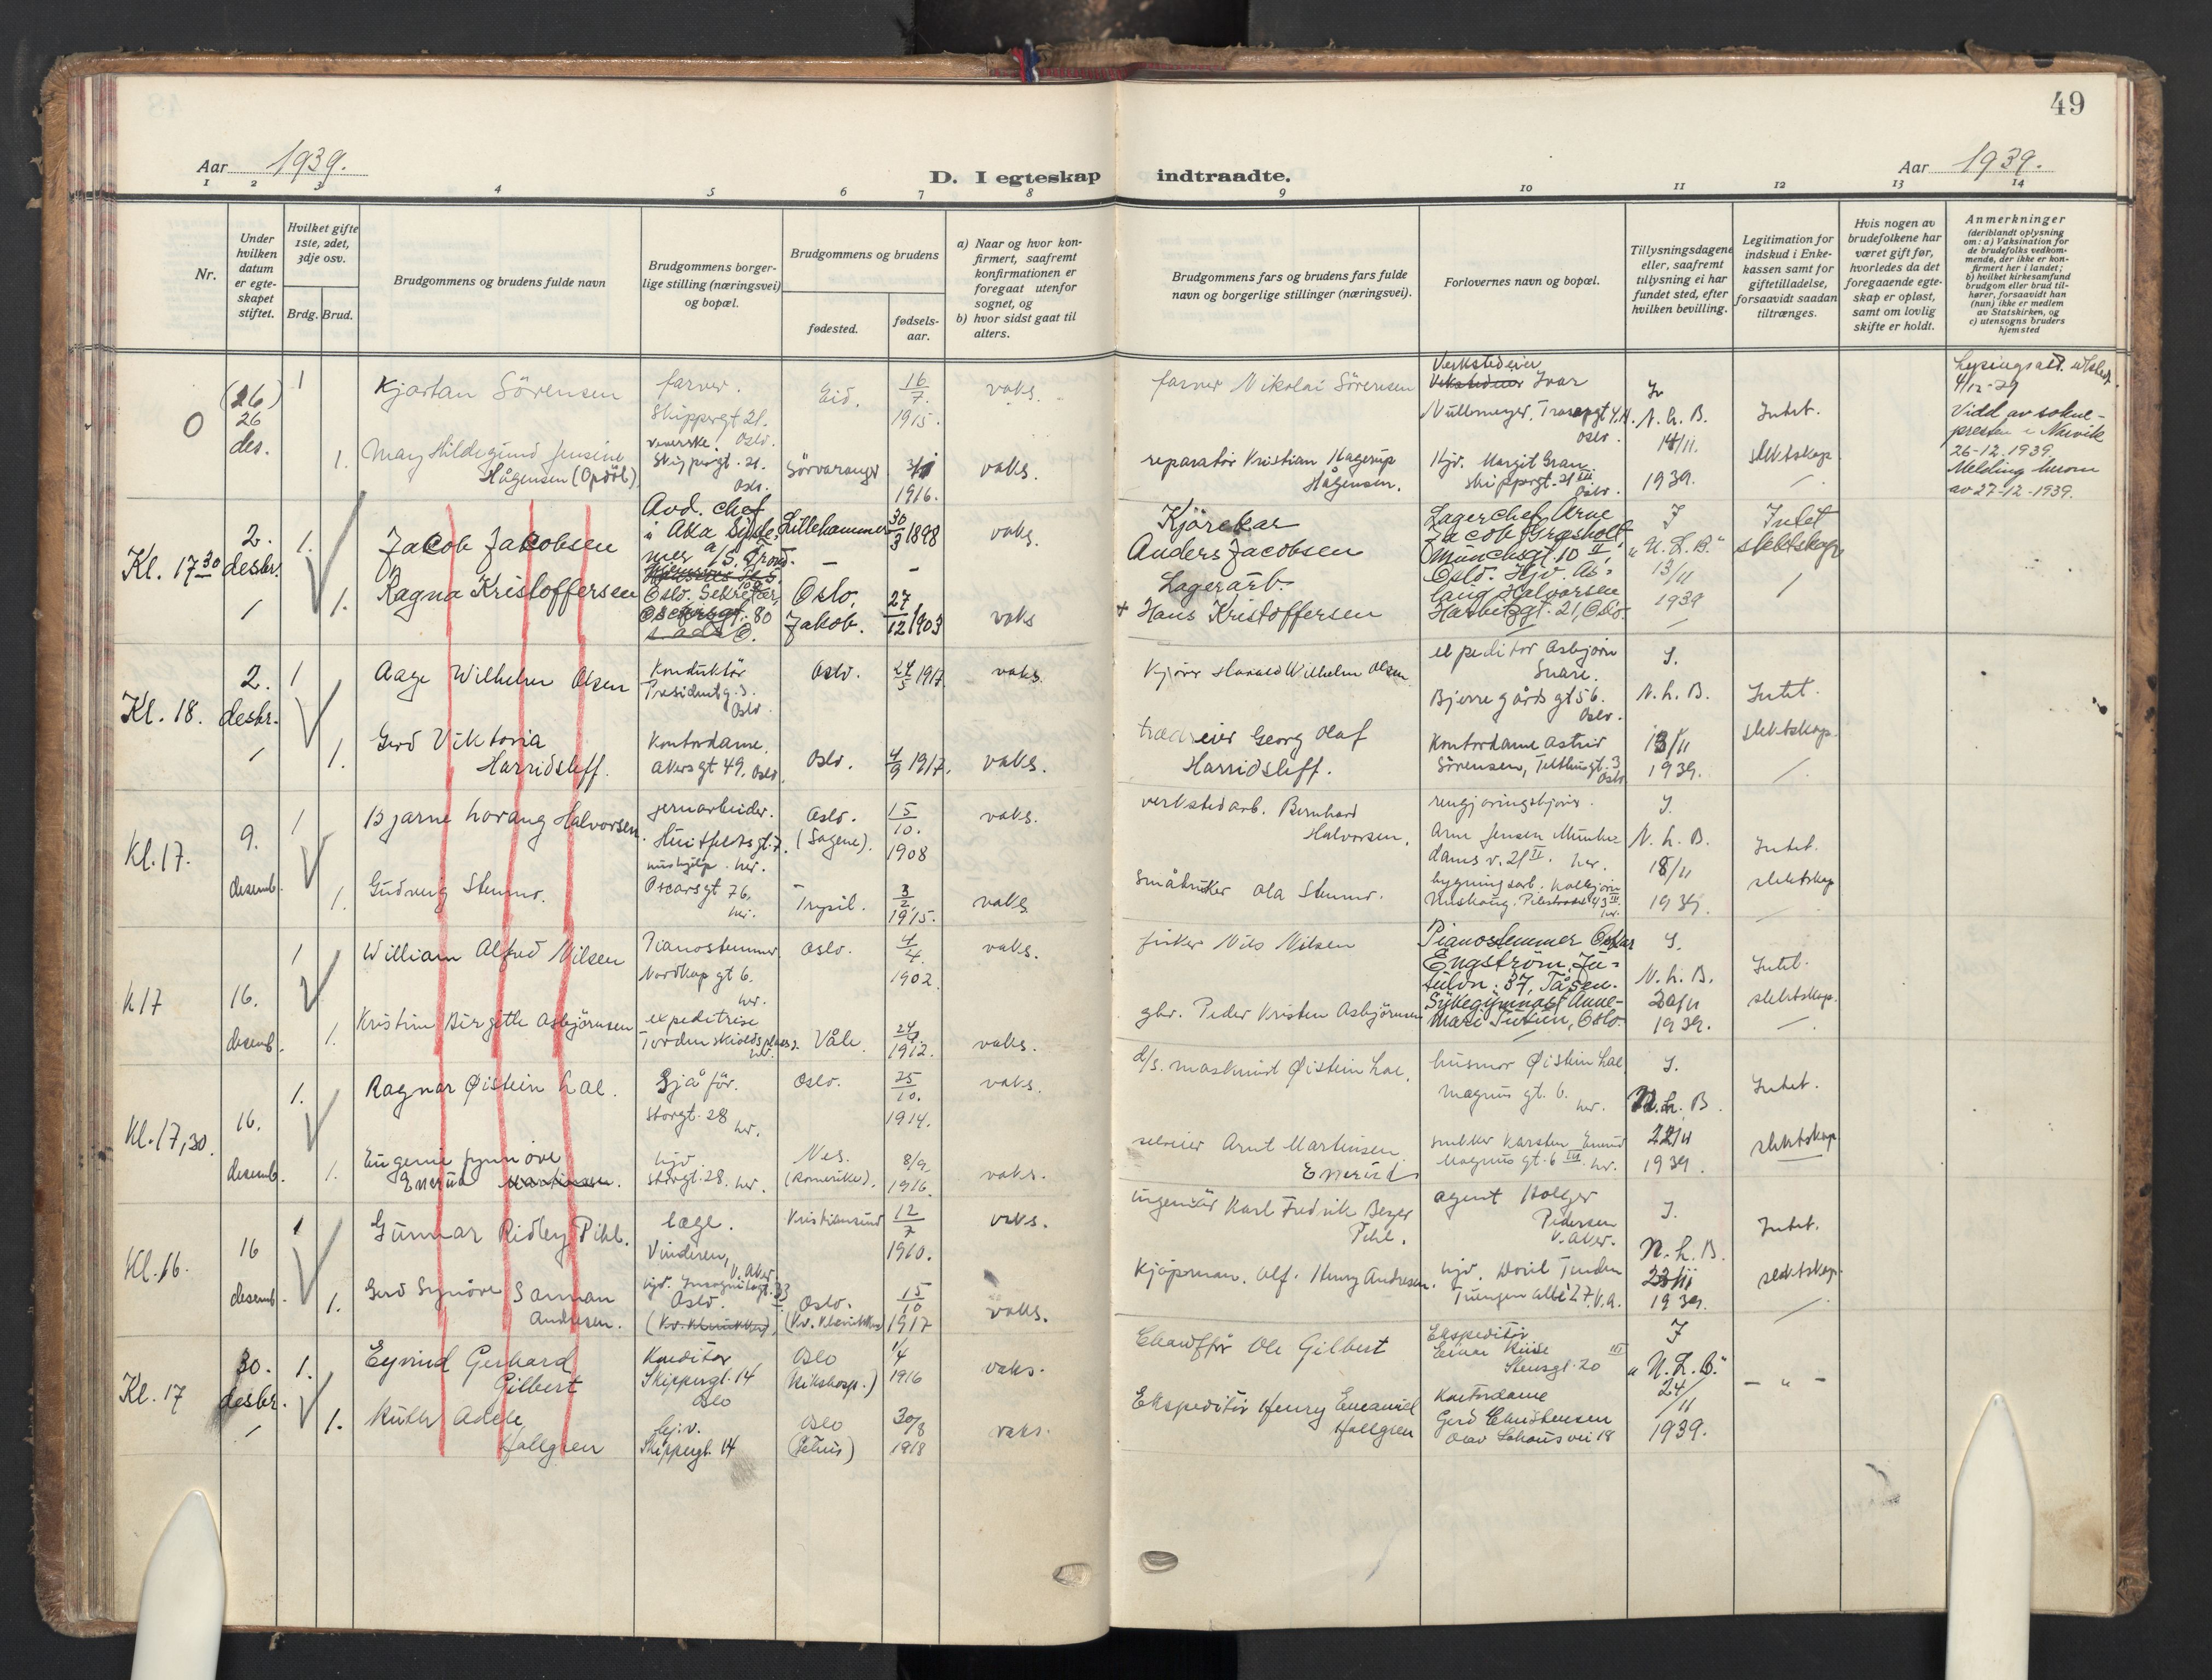 49
Aar 1939.
D. I egteskap indtraadte.
Aar 1939.
1 2 3 4 5 6 7 8 9 10 11 12 13 14
Nr.
Under hvilken datum er egte-skapet stiftet.
Hvilket gifte 1ste, 2det, 3dje osv.
Brdg. Brud.
Brudgommens og brudens fulde navn
Brudgommens borger-lige stilling (næringsvei) og bopæl.
Brudgommens og brudens
fødested.
fødsels-aar.
a) Naar og hvor kon-firmert, saafremt konfirmationen er foregaat utenfor sognet, og
b) hvor sidst gaat til alters.
Brudgommens fars og brudens fars fulde navn og borgerlige stillinger (næringsvei).
Forlovernes navn og bopæl.
Tillysningsdagene eller, saafremt tillysning ei har fundet sted, efter hvilken bevilling.
Legitimation for indskud i Enke-kassen samt for giftetilladelse, forsaavidt saadan tiltrænges.
Hvis nogen av brudefolkene har været gift før, hvorledes da det foregaaende egte-skap er opløst, samt om lovlig skifte er holdt.
Anmerkninger
(deriblandt oplysning om: a) Vaksination for de brudefolks vedkom-mende, der ikke er kon-firmert her i landet;
b) hvilket kirkesamfund brudgom eller brud til-hører, forsaavidt han (hun) ikke er medlem av Statskirken, og
c) utensogns bruders hjemsted
0 (26) 26 des.
1 Kjartan Sörensen
farver. Skippergt 21. Oslo.
Eid. 16/7. 1915. vaks.
farver Nikolai Sörensen
Verkstedeier Ivar
N. L. B. 14/11. 1939.
Intet slektskap
4/12-39
Vidd av sokne-
presten i Narvik
26-12.1939.
Melding herom
av 27-12-1939.
1. Mary Hildegund Jensine
Hågensen (Opdöl)
Skippergt. 21. Oslo.
Sörvaranger 1916. vaks.
reparatör Kristian Hagerup
Hågensen.
Hjv. Margit Gran
Skippergt. 21 III Oslo.
Kl. 17 30 2. desbr.
1. Jacob Jakobsen
Avd. chef
Lillehammer 30/3 1898 vaks.
Kjörekar
Anders Jacobsen
Lagerchef Arne
Jacob Græsholt
Munchsgt. 10 II
J "N. L. B." 13/11 1939
Intet slektskap
1. Ragna Kristoffersen
Oslo. Sekretær,
Oscarsgt. 80
Oslo, Jakob. 27/12 1903 vaks
Lagerarb.
+ Hans Kristoffersen
Oslo. Hjv. As-
laug Halvorsen
Harbitzgt. 21, Oslo.
Kl. 18. 2. desbr.
1 Aage Wilhelm Olsen
Konduktör
Presidentg. 3. Oslo
Oslo. 24/5 1917 vaks.
Kjörer Harald Wilhelm Olsen
ekspeditör Asbjörn
Snare.
Bjerregårdsgt 56. Oslo.
J. N. L. B. 13/11 1939.
Intet slektskap.
1. Gerd Viktoria
Harridsleff.
Kontordame.
Akersgt 49. Oslo.
Oslo. 4/9 1917. vaks.
Georg Olaf
Harridsleff.
Kontordame Astrid
Sörensen, Telthusgt. 3 Oslo
Kl. 17. 9. desemb.
1 Bjarne Lorang Halvorsen.
jernarbeider.
Huitfeldtsgt. 7.
Oslo. (Sagene). 15/10. 1908 vaks.
verkstedarb. Bernhard
Halvorsen.
Arne Jensen Munke-
damsv. 21 II. her.
J. N. L. B. 18/11 1939.
Intet. slektskap
1. Gudveig Stenmo.
hushjelp. her.
Oscarsgt 76, her.
Trysil. 3/2 1915. vaks
Småbruker Ola Stenmo.
bygningsarb.
Kl 17 16. desemb.
1 William Alfred Nilsen
Pianostemmer
Nordkap gt 6. her.
Oslo. 4/4. 1902 vaks.
Nils Nilsen
Pianostemmer Oskar
Engström, Ju-
tulvn. 37, Tåsen.
J. N. L. B. 20/11 1939.
Intet. slektskap.
1. Kristine Birgitte Asbjörnsen
expeditrise
Tordenskioldsplass 2. her.
Våle 1912. vaks.
gbr. Peder Kristen Asbjörnsen
Sykegymnast Anne-
Mari Tutein, Oslo.
Kl. 17,30. 16. desemb.
1. Ragnar Øistein Lae.
Sjåför.
Storgt. 28 her.
Oslo. 25/10. 1914. vaks.
d/s. maskinist Øistein Lae.
husmor Øistein Lae
Magnus gt. 6. her.
J. N. L. B. 22/11 1939.
Intet. slektskap
1. Eugenie Synnöve
Enerud Martinsen.
hjv
Storgt. 28. her.
Nes. (Romerike). 8/9. 1916. vaks.
selveier Arnt Martinsen
Enerud
snekker Karsten Enerud
Magnus gt. 6 III. her.
Kl. 16. 16 desemb.
1 Gunnar Ridley Pihl.
læge.
Vinderen, V. Aker
Kristiansund 12/7 1910. vaks.
ingeniör Karl Fredrik Beyer
Pihl.
agent Holger
Pedersen
V. Aker.
J. N. L. B. 1939.
Intet. slektskap.
1. Gerd Synöve Sannan
Andresen.
hjv. Incognitogt. 33
Oslo.
Oslo. 15/10 1917 vaks.
Kjöpman. Alf. Henry Andresen.
hjv. Doril Tinden
Tuengen allé 27. V.A.
Kl. 17 30. desbr.
1. Eyvind Gerhard
Gilbert
Konditor
Skippergt. 14
Oslo
Oslo (Rikshosp.) 1/4 1916 vaks.
Chauffør Ole Gilbert
Ekspeditör
Einar Riise
Stensgt. 20 III
J "N. L. B." 24/11 1939.
- " -
1. Ruth Adele
Hallgren
Hj.v.
Skippergt. 14
Oslo (Petrus) 30/8 1918 vaks.
Ekspeditör Henry Emanuel
Hallgren
Kontordame
Gerd Christensen
Olav Schous vei 18